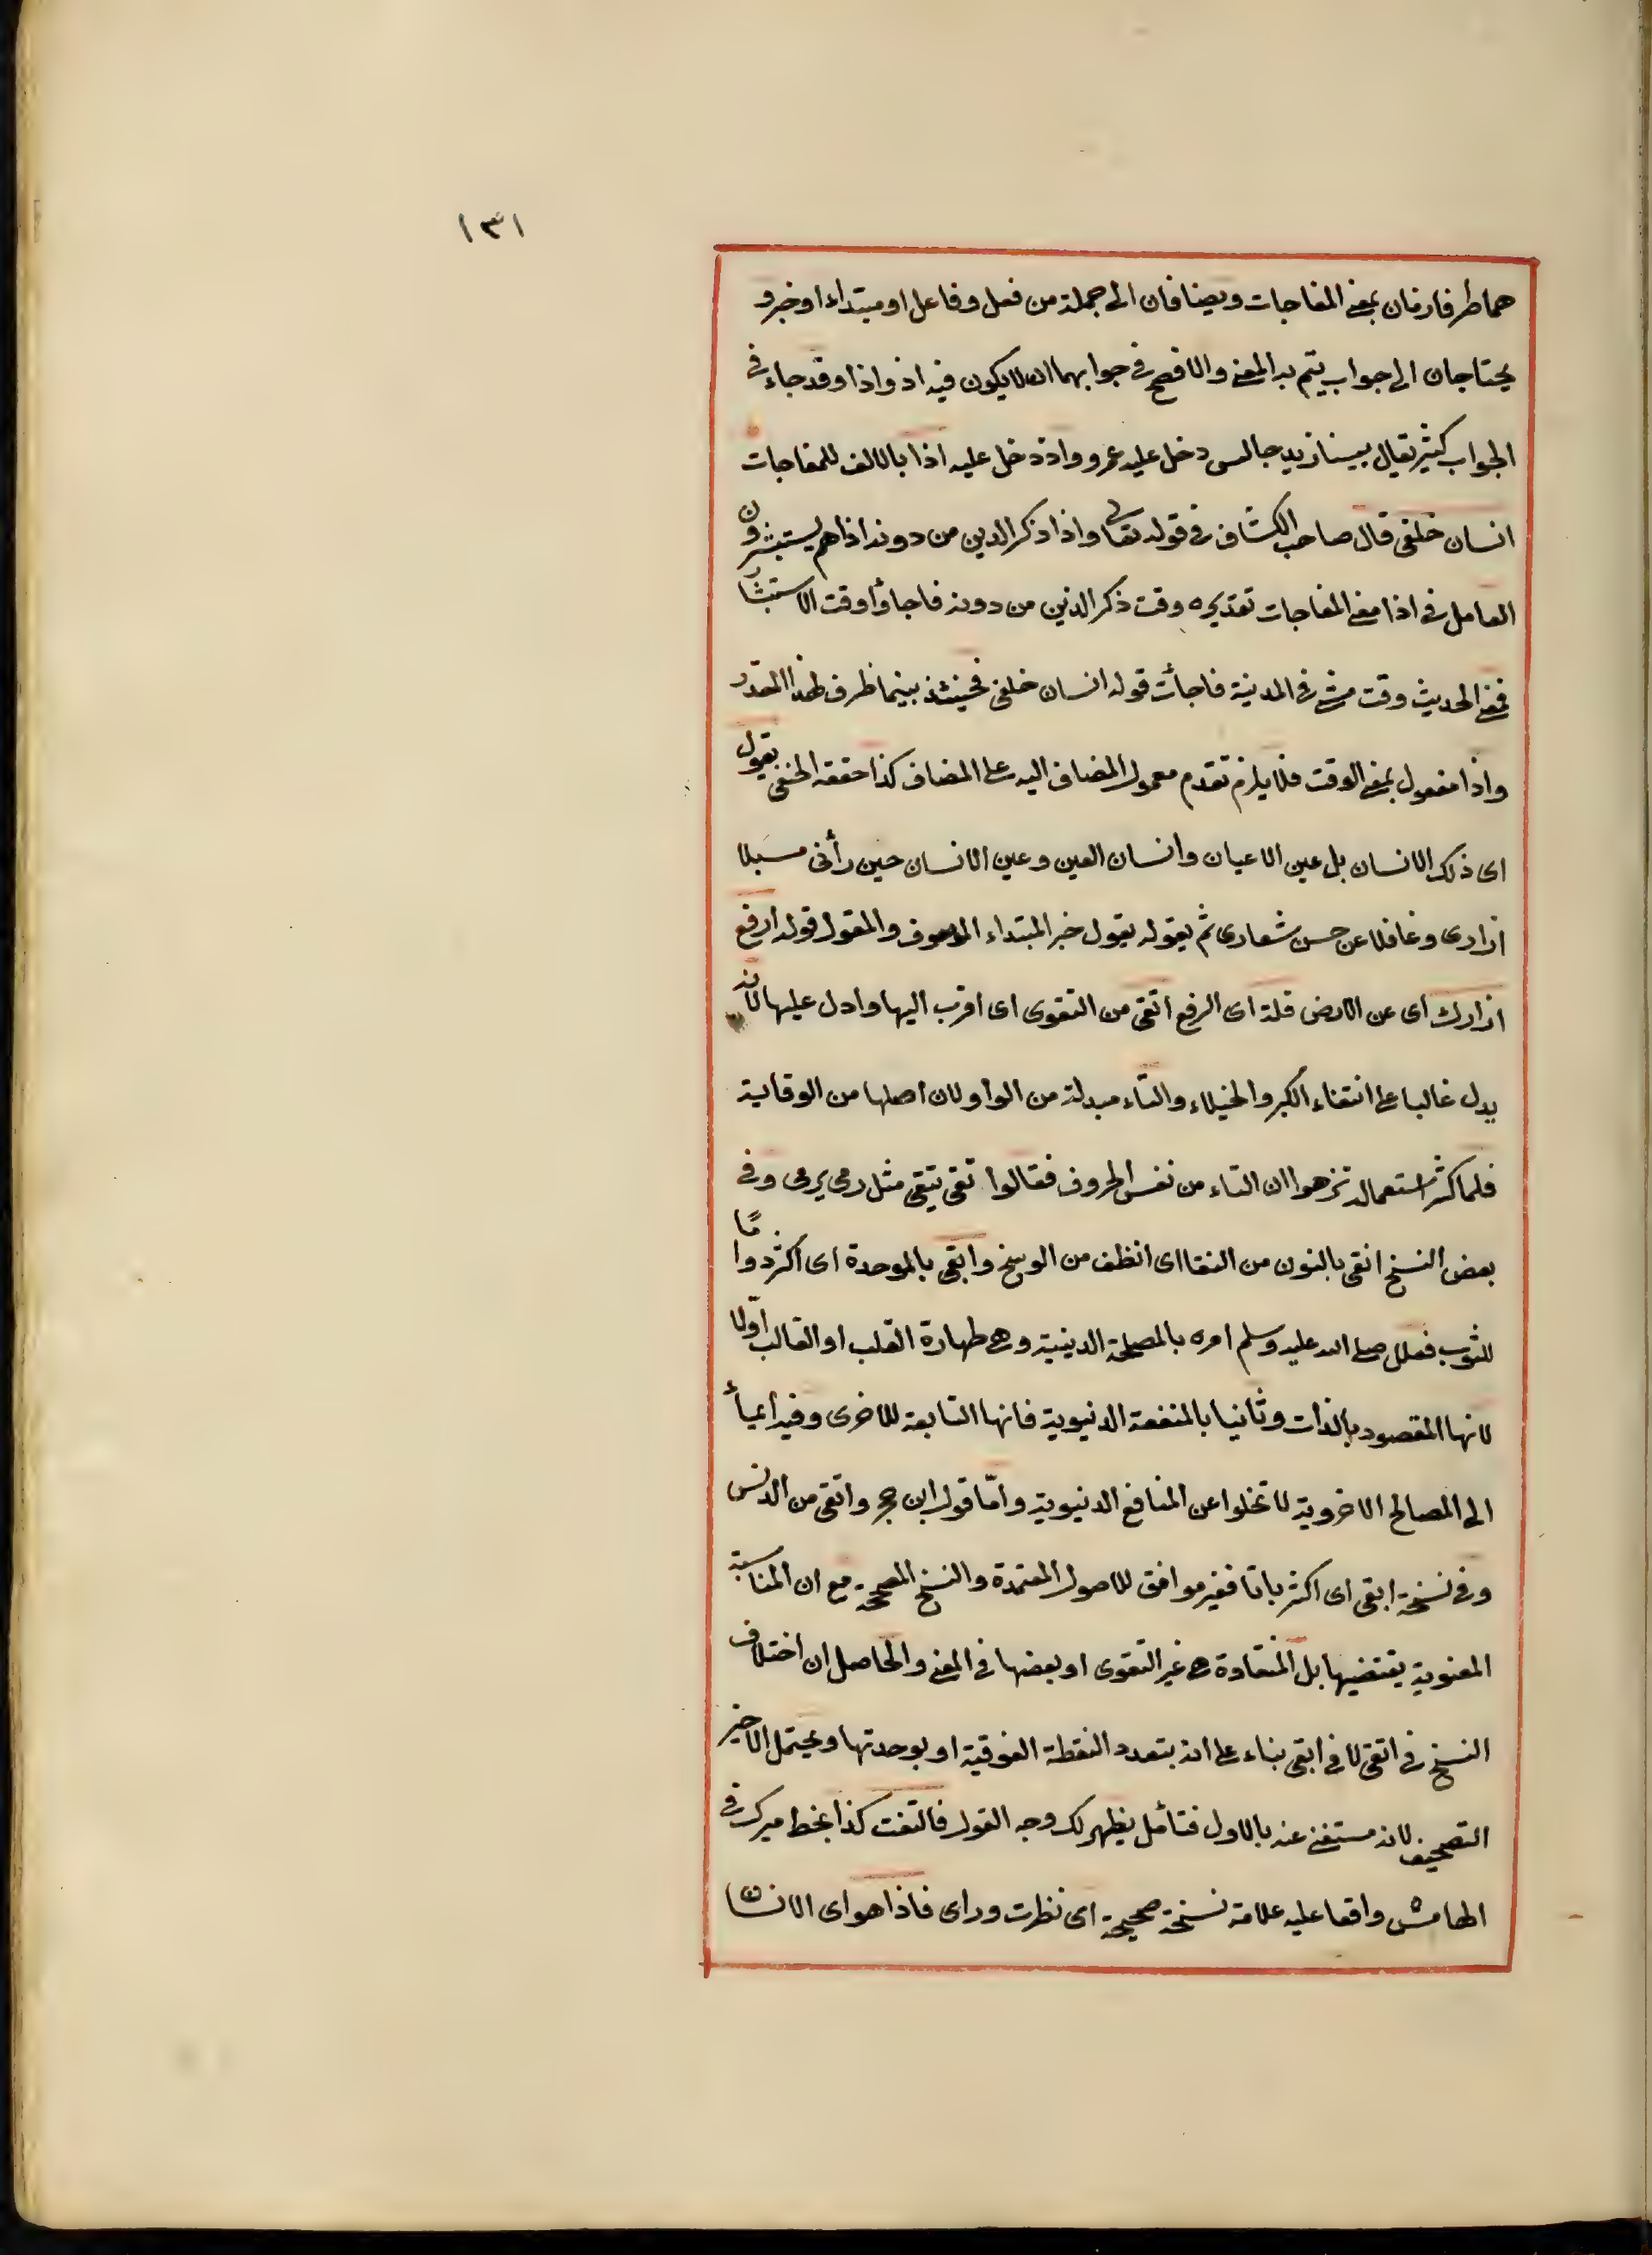 ١٣١
هما ظرفا زمان بمعنى المفاجات ويضافان الى جملة من فعل وفاعل او مبتداء او خبر و
يحتاجان الى جواب يتم به المعنى والافصح في جوابهما ان لا يكون فيه اذ واذا وقد جاء في
الجواب كثير تقال بينا زيد جالس دخل عليه عمرو واذ دخل عليه اذا بالالف للمفاجات
انسان خلفى قال صاحب الكشاف في قوله تعالى واذا ذكر الدين من دونه اذا هم يستبشرون
العامل في اذا معنى المفاجات تقديره وقت ذكر الذين من دونه فاجاؤا وقت الاستبشار
فمعنى الحديث وقت مشى في المدينة فاجأت قوله انسان خلفى فحينئذ بينما ظرف لهذا المقدر
واذا مفعول بمعنى الوقت فلا يلزم تقدم معمول المضاف اليه على المضاف كذا حققه الحنفى يقول
اى ذلك الانسان بل عين الاعيان وانسان العين وعين الانسان حين رأنى مسبلا
ازارى وغافلا عن حسن شعارى ثم بقوله يقول خبر المبتداء الموصوف والمقول قوله ارفع
ازارك اى عن الارض قلة اى الرفع اتقى من التقوى اى اقرب اليها وادل عليها لانه
يدل غالبا على انتفاء الكبر والخيلاء والتاء مبدلة من الواو لان اصلها من الوقاية
فلما كثر استعماله تزهوا ان التاء من نفس الحروف فقالوا تقى يتقى مثل رمى يرمى وفى
بعض النسخ انقى بالنون من النقا اى انظف من الوسخ وابقى بالموحدة اى اكثر دواما
للثوب فعلل صلى الله عليه وسلم امره بالمصلحة الدينية وهى طهارة القلب او القالب اولا
لانها المقصود بالذات وثانيا بالمنفعة الدنيوية فانها التابعة للاخرى وفيه ايمأ
الى المصالح الاخروية لا تخلوا عن المنافع الدنيوية وامّا قول ابن حجر واتقى من الدنس
وفى نسخة ابقى اى اكثر باتا فغير موافق للاصول المعتمدة والنسخ المصححة مع ان المناسبة
المعنوية يقتضيها بل المنقادة هى غير التقوى او بعضها فى المعنى والحاصل ان اختلاف
النسخ فى اتقى لا فى ابقى بناء على انه بتعدد النقطة الفوقية او بوحدتها ويحتمل الاخير
التصحيف لانه مستغنى عنه بالاول فتأمل يظهر لك وجه القول فالتفت كذا بخط ميرك فى
الهامش واقعا عليه علامة نسخة صحيحة اى نظرت وراى فاذا هو اى الانسان